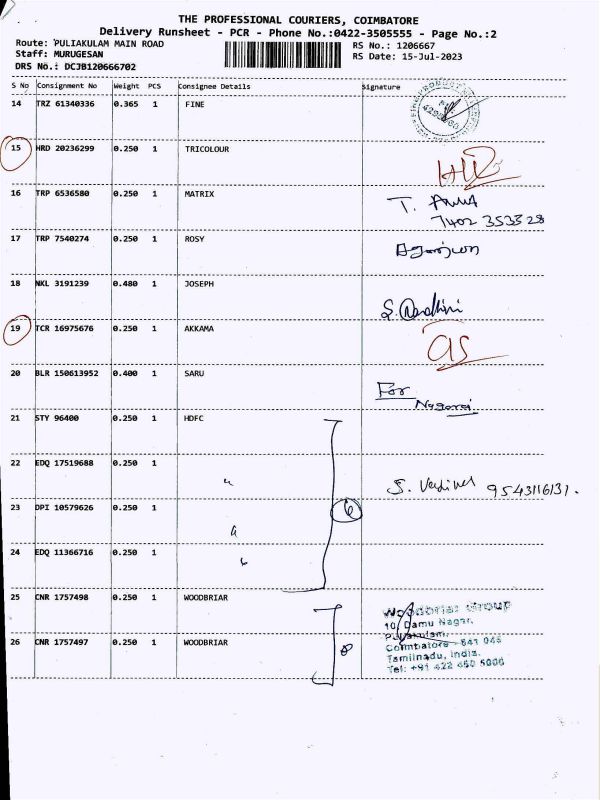 THE PROFESSIONAL COURIERS, COIMBATORE
Delivery Runsheet - PCR - Phone No.:0422-3505555 - Page No.:2
Route: PULIAKULAM MAIN ROAD RS No.: 1206667
Staff: MURUGESAN RS Date: 15-Jul-2023
DRS No.: DCJB120666702
S No Consignment No Weight PCS Consignee Details Signature
14 TRZ 61340336 0.365 1 FINE
15 HRD 20236299 0.250 1 TRICOLOUR
16 TRP 6536580 0.250 1 MATRIX
T.
7402 353328
17 TRP 7540274 0.250 1 ROSY
18 NKL 3191239 0.480 1 JOSEPH
S. Nandhini
19 TCR 16975676 0.250 1 AKKAMA
20 BLR 150613952 0.400 1 SARU
For
Nagaraj
21 STY 96400 0.250 1 HDFC
22 EDQ 17519688 0.250 1 "
S. Vadivel 9543116131.
23 DPI 10579626 0.250 1 " 6
24 EDQ 11366716 0.250 1 "
25 CNR 1757498 0.250 1 WOODBRIAR
Woodbriar Group
10, Damu Nagar,
Puliakulam,
26 CNR 1757497 0.250 1 WOODBRIAR 8
Coimbatore - 641 045
Tamilnadu, India.
Tel: +91 422 450 5006